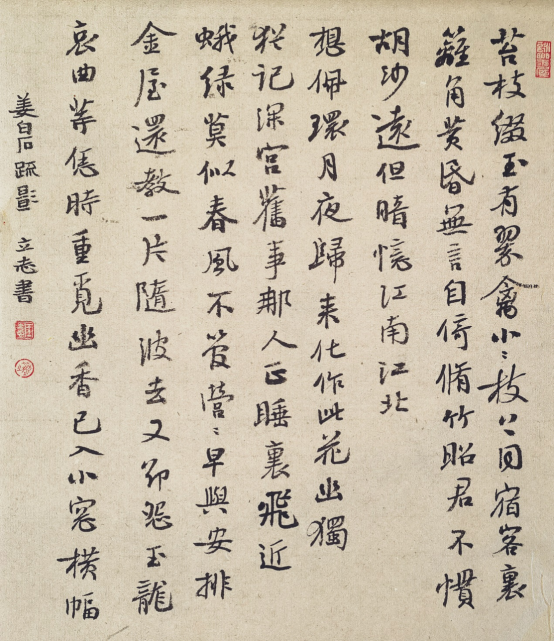 苔枝綴玉有翠禽小〻枝上同宿客裏
籬角黄昏無言自倚脩竹昭君不慣
胡沙遠但暗憶江南江北
想佩環月夜歸来化作此花幽獨
猶記深宫舊事那人正睡裏飛近
蛾緑莫似春風不管營〻早與安排
金屋還教一片隨波去又却怨玉龍
哀曲等恁時重覓幽香已入小窓橫幅
姜白石疏影 立志書